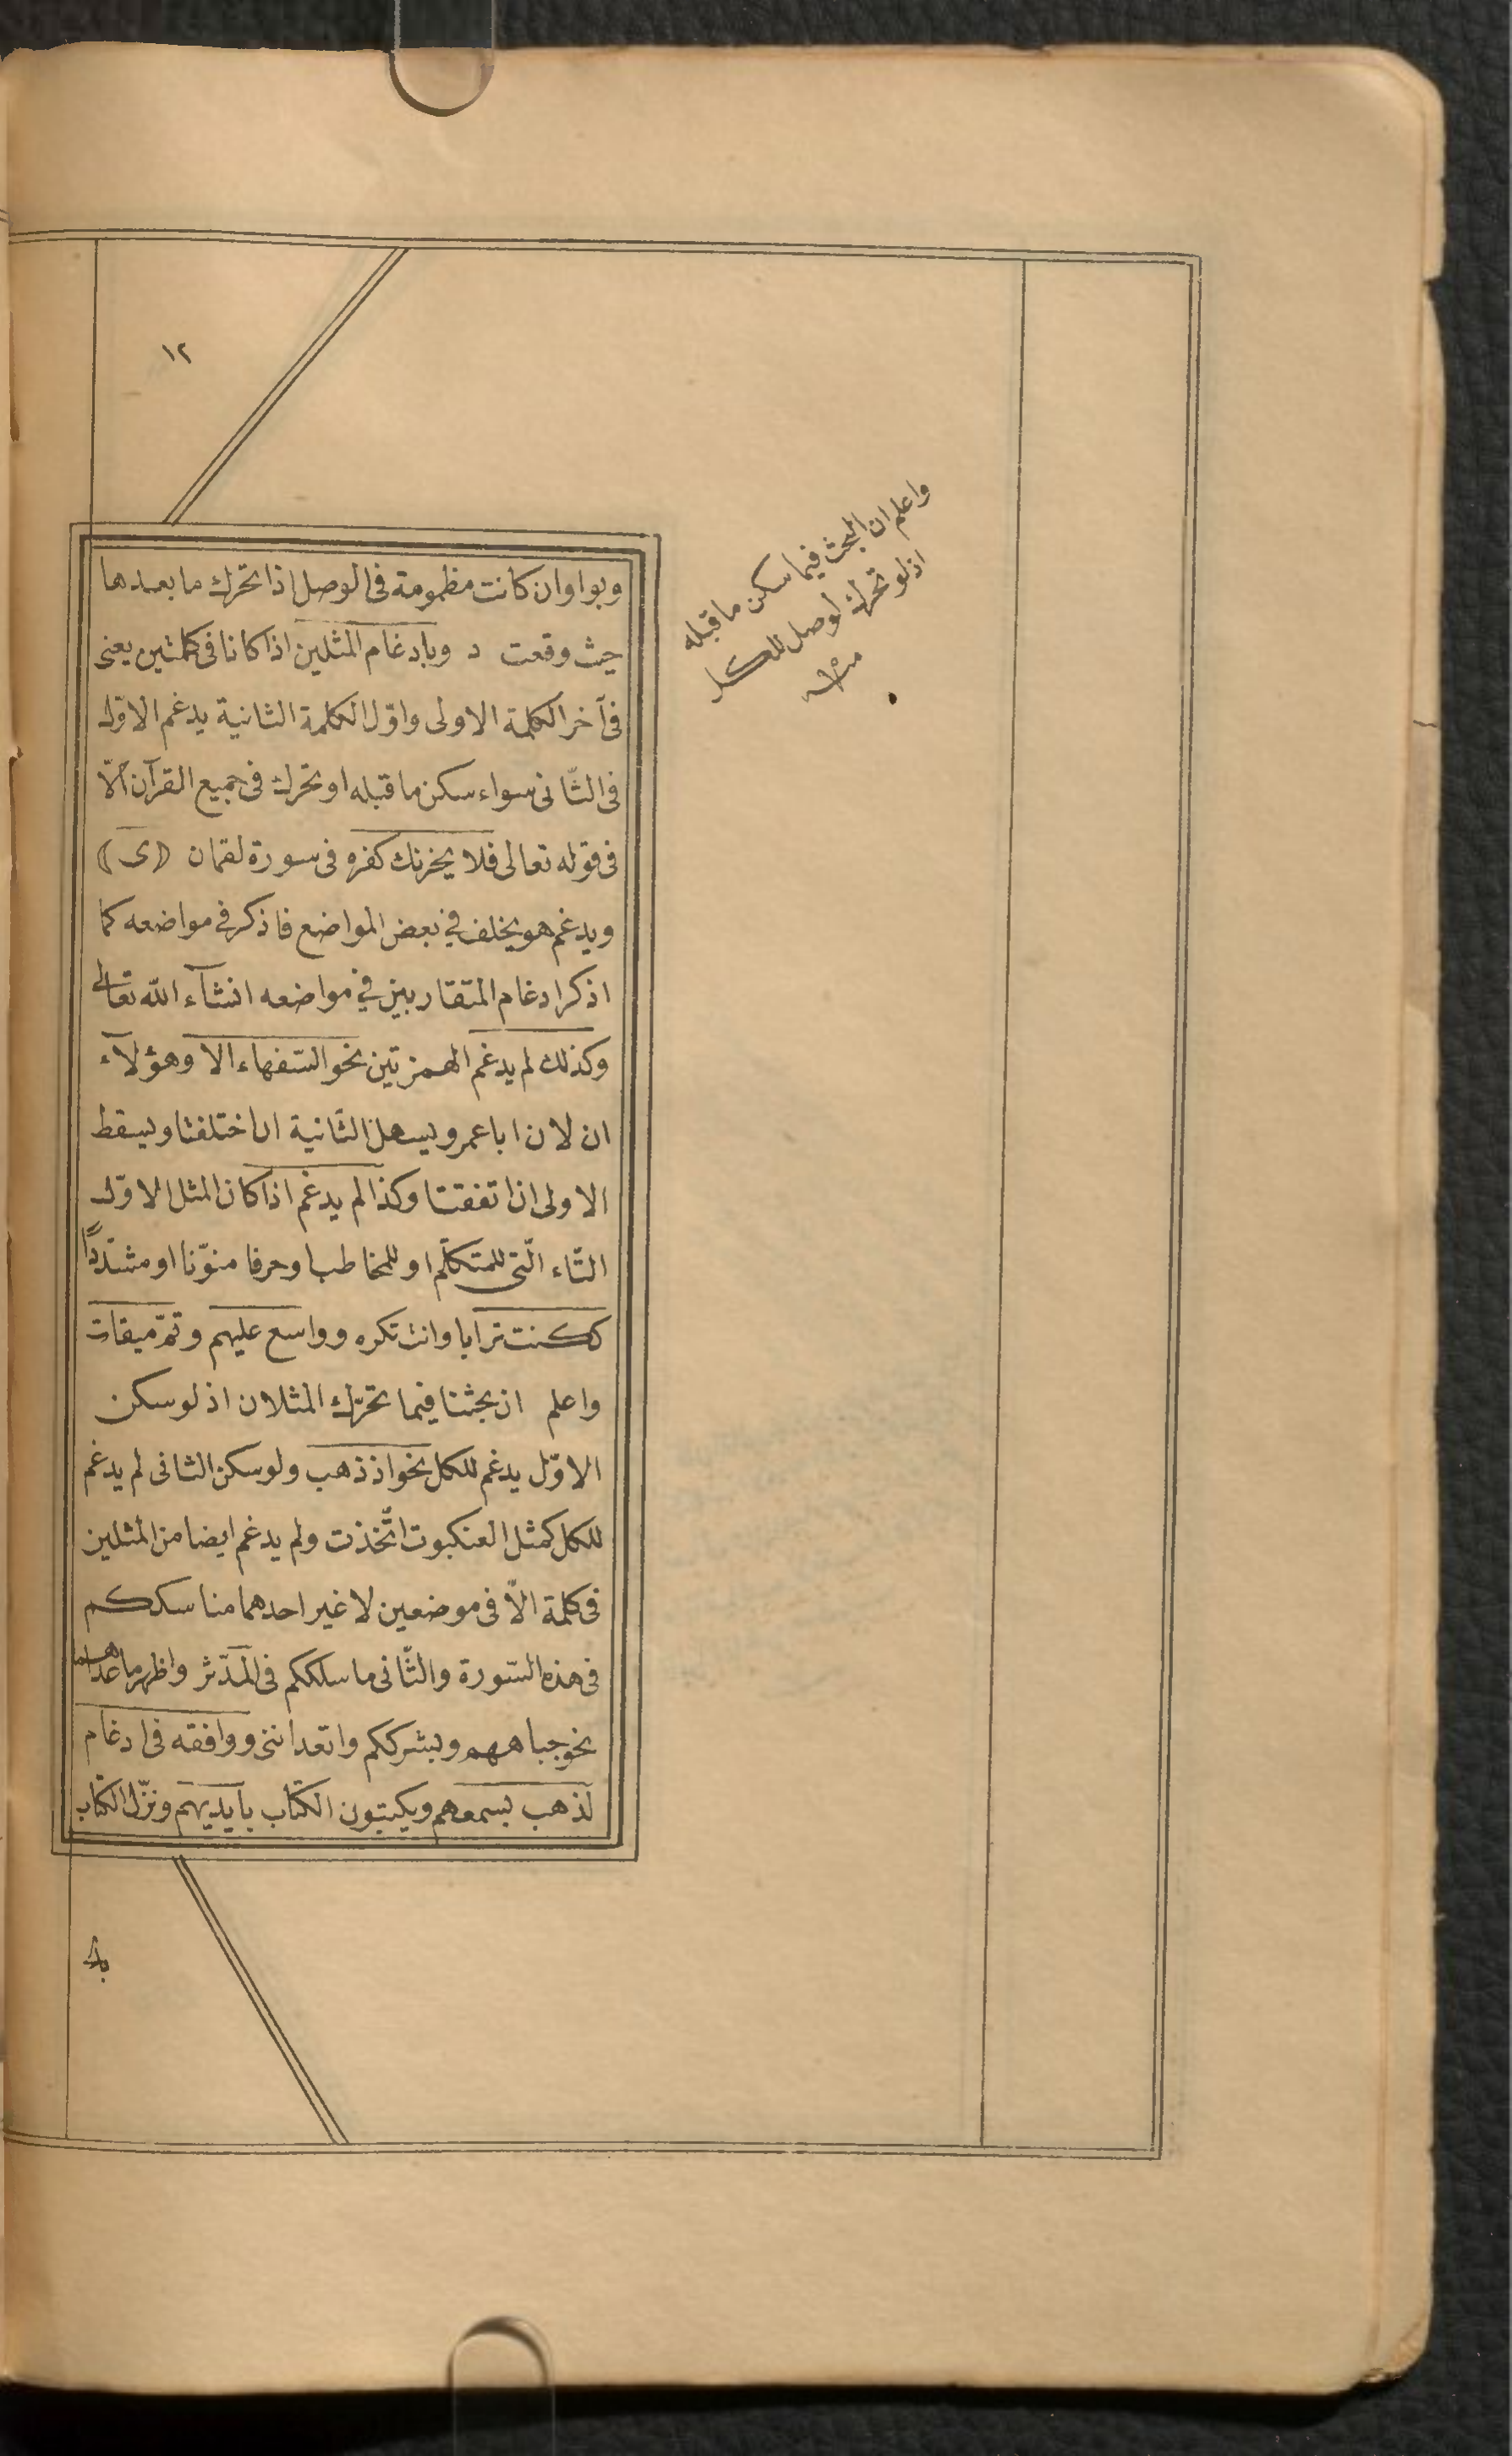 ١٢
وبواو ان كانت مظمومة فى الوصل اذا تحرك ما بعدها
حيث وقعت د وبادغام المثلين اذا كانا فى كلمتين يعنى
فى آخر الكلمة الاولى واوّل الكلمة الثانية يدغم الاوّل
فى الثّانى سواء سكن ما قبله او تحرك فى جميع القرآن الّا
فى قوله تعالى فلا يحزنك كفره فى سورة لقمان (ى)
ويدغم هو بخلف في بعض المواضع فاذكر فى مواضعه كما
اذكر ادغام المتقاربين في مواضعه انشآء الله تعالى
وكذلك لم يدغم الهمزتين نحو السّفهاء الا وهؤلآء
ان لان ابا عمرو يسهل الثّانية ان اختلفتا ويسقط
الاولى ان اتفقتا وكذا لم يدغم اذا كان المثل الاوّل
التّاء الّتى للمتكلّم او للمخاطب او حرفا منوّنا او مشدّداً
ككنت ترابا وانت تكره وواسع عليهم وتمّ ميقات
واعلم ان بحثنا فيما تحرّك المثلان اذ لو سكن
الاوّل يدغم للكل نحو اذ ذهب ولو سكن الثانى لم يدغم
للكل كمثل العنكبوت اتّخذت ولم يدغم ايضا من المثلين
فى كلمة الّا فى موضعين لا غير احدهما مناسككم
فى هذه السّورة والثّانى ما سلككم فى المدّثر واظهر ما عداهما
نحو جباههم وبشرككم واتعداننى ووافقه فى ادغام
لذهب بسمعهم ويكتبون الكتاب بايديهم ونزّل الكتاب
واعلم ان البحث فيما سكن ما قبله
اذ لو تحرك لوصل للكل
منه